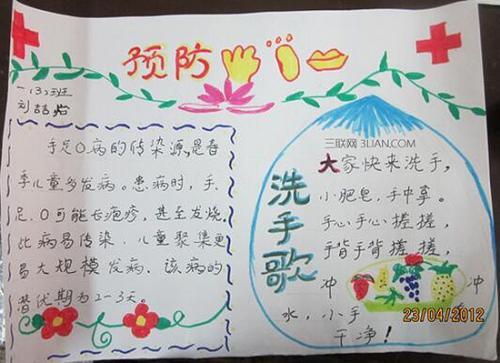 预防
一(3)班
三联网 3LIAN.COM
手足口病的传染源,是春
季儿童多发病。患病时,手、
足、口可能长疱疹,甚至发烧。
此病易传染,儿童聚集更
易大规模发病,该病的
潜伏期为2-3天。
洗手歌
大家快来洗手,
小肥皂,手中拿。
手心手心搓搓,
手背手背搓搓,
冲 冲
水,小手
干净!
23/04/2012